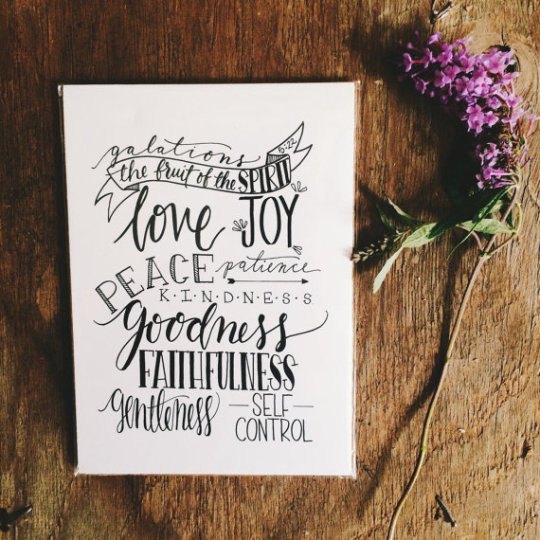 galations 5:22
the fruit of the SPIRIT
love JOY
PEACE patience
K·I·N·D·N·E·S·S
goodness
FAITHFULNESS
gentleness SELF
CONTROL